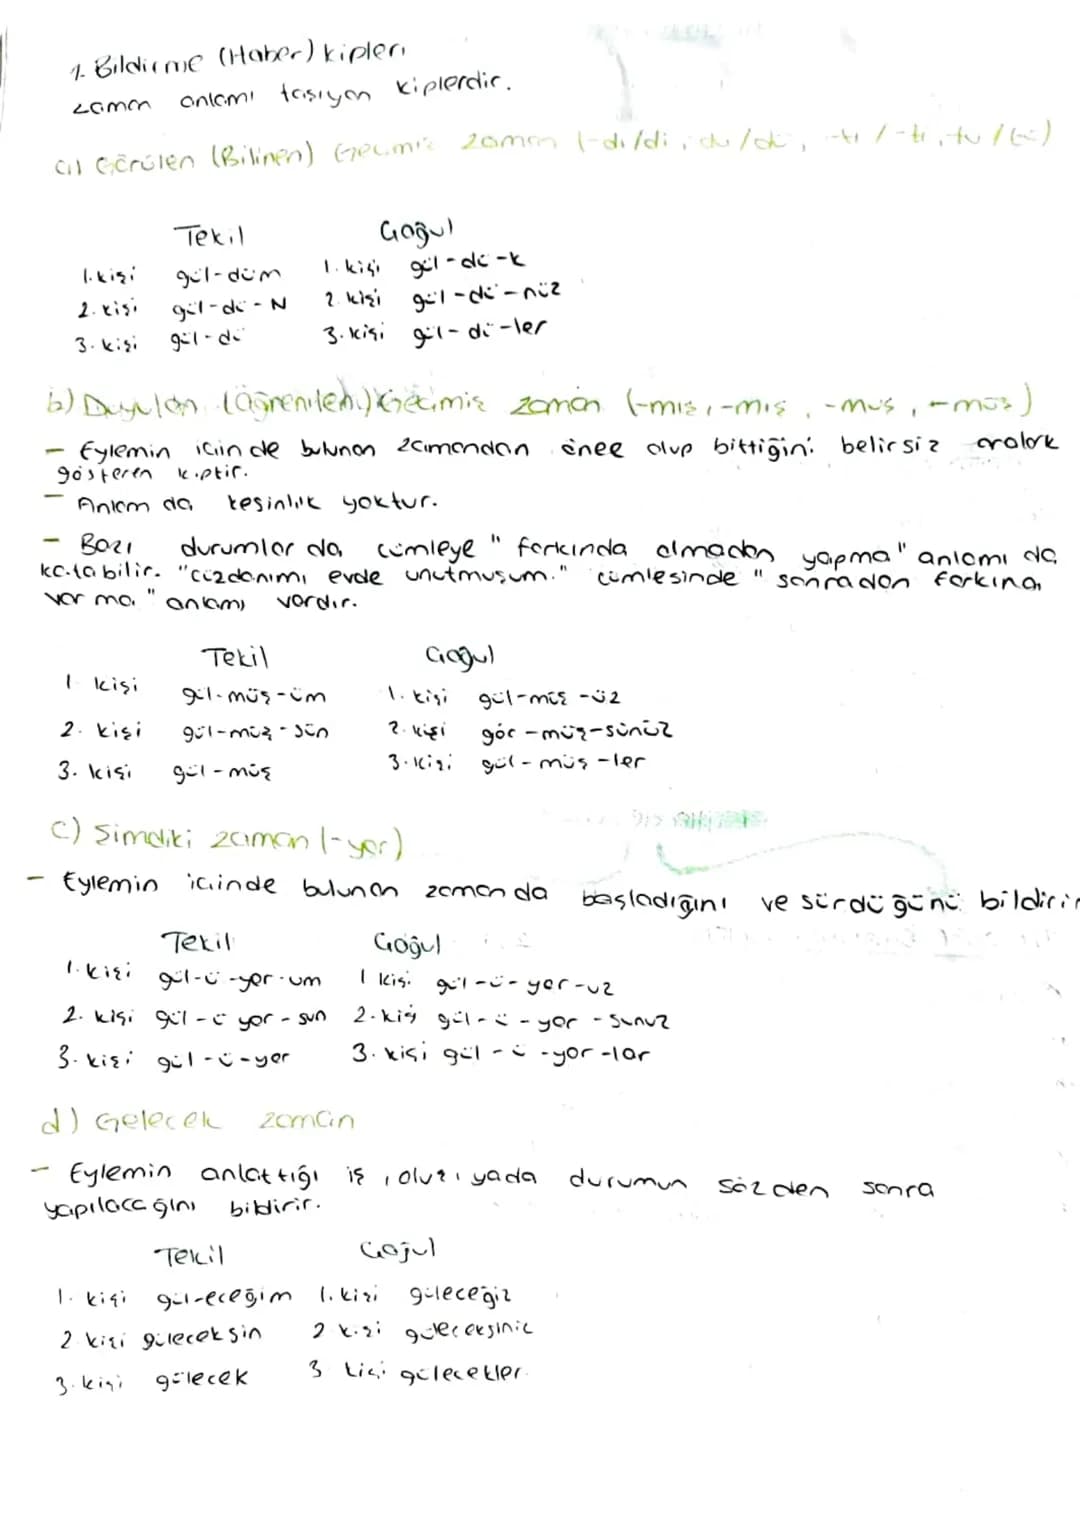 1. Bildirme (Haber) kipleri
zaman anlamı taşıyan kiplerdir.
a) Görülen (Bilinen) Geçmiş zaman (-dı/di, du/dü, -tı/-ti, tu/tü)
Tekil Çoğul
1. kişi gül-düm 1. kişi gül-dü-k
2. kişi gül-dü-N 2. kişi gül-dü-nüz
3. kişi gül-dü 3. kişi gül-dü-ler
b) Duyulan (öğrenilen) Geçmiş zaman (-mış, -miş, -muş, -müş)
- Eylemin içinde bulunan zamandan önce olup bittiğini belirsiz olarak
gösteren kiptir.
- Anlam da kesinlik yoktur.
- Bazı durumlar da, cümleye "farkında olmadan yapma" anlamı da,
katabilir. "cüzdanımı evde unutmuşum." cümlesinde "sonradan farkına
varma" anlamı vardır.
Tekil Çoğul
1 kişi gül-müş-üm 1. kişi gül-müş-üz
2. kişi gül-müş-sün 2. kişi gör-müş-sünüz
3. kişi gül-müş 3. kişi gül-müş-ler
c) Şimdiki zaman (-yor)
- Eylemin içinde bulunan zamanda başladığını ve sürdüğünü bildirir
Tekil Çoğul
1. kişi gül-ü-yor-um 1 kişi gül-ü-yor-uz
2. kişi gül-ü yor-sun 2. kişi gül-ü-yor-sunuz
3. kişi gül-ü-yor 3. kişi gül-ü-yor-lar
d) Gelecek zaman
- Eylemin anlattığı iş, oluş, yada durumun sözden sonra
yapılacağını bildirir.
Tekil Çoğul
1. kişi gül-eceğim 1. kişi güleceğiz
2 kişi güleceksin 2 kişi güleceksiniz
3. kişi gülecek 3 kişi gülecekler.